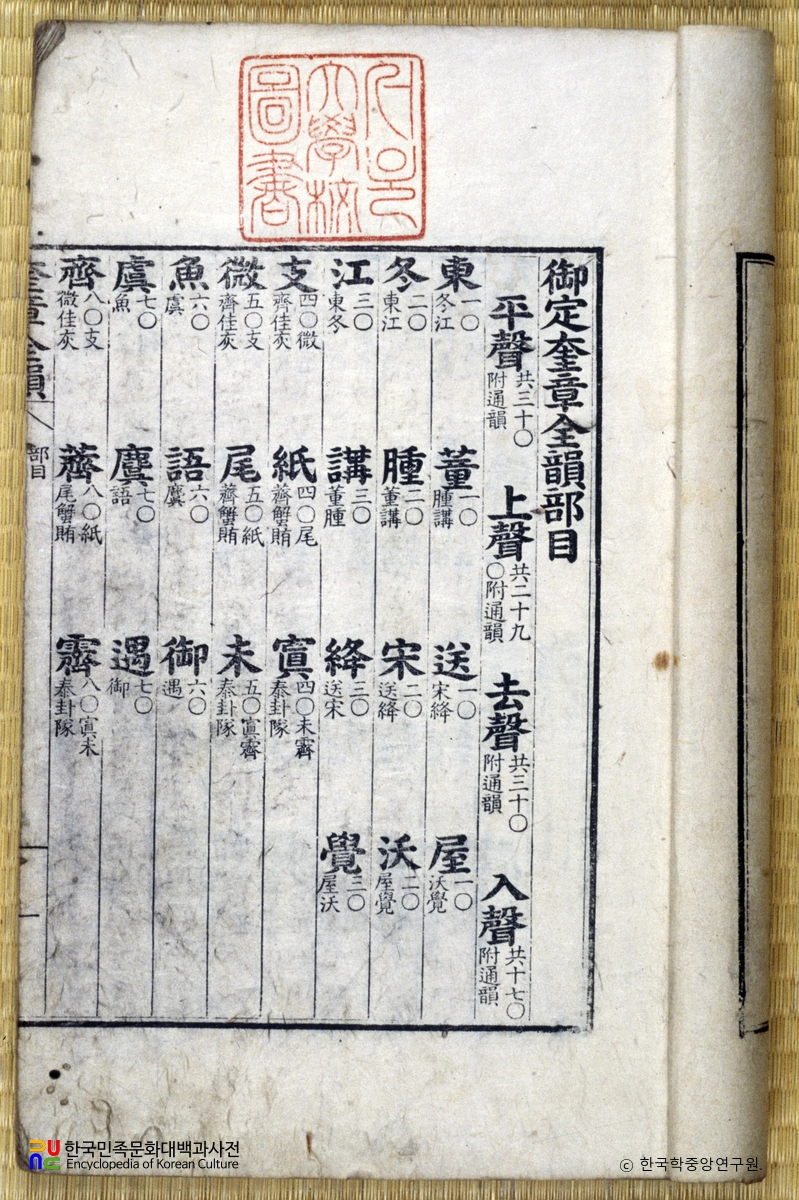 大學校
圖書
御定奎章全韻部目
平聲共三十○附通韻 上聲共二十九○附通韻 去聲共三十○附通韻 入聲共十七○附通韻
東一○冬江 董一○腫講 送一○宋絳 屋一○沃覺
冬二○東江 腫二○董講 宋二○送絳 沃二○屋覺
江三○東冬 講三○董腫 絳三○送宋 覺三○屋沃
支四○微齊佳灰 紙四○尾薺蟹賄 寘四○未霽泰卦隊
微五○支齊佳灰 尾五○紙薺蟹賄 未五○寘霽泰卦隊
魚六○虞 語六○麌 御六○遇
虞七○魚 麌七○語 遇七○御
齊八○支微佳灰 薺八○紙尾蟹賄 霽八○寘未泰卦隊
奎章全韻 部目
한국민족문화대백과사전
Encyclopedia of Korean Culture
© 한국학중앙연구원